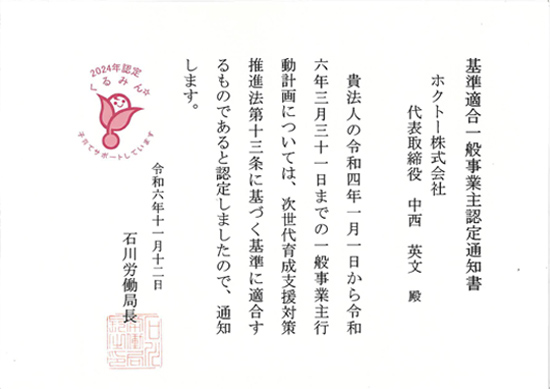 基準適合一般事業主認定通知書
ホクトー株式会社
代表取締役 中西 英文 殿
貴法人の令和四年一月一日から令和
六年三月三十一日までの一般事業主行
動計画については、次世代育成支援対策
推進法第十三条に基づく基準に適合す
るものであると認定しましたので、通知
します。
2024年認定
くるみん
子育てサポートしています
令和六年十一月十二日
石川労働局長